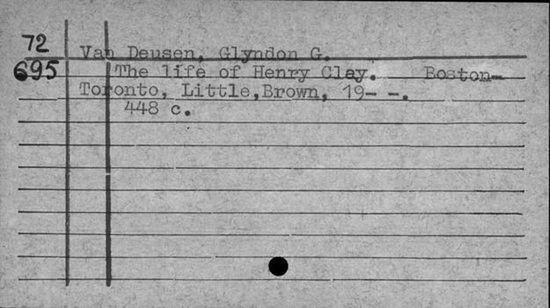 72
695
Van Deusen, Glyndon G.
The life of Henry Clay. Boston-
Toronto, Little,Brown, 19- -.
448 c.